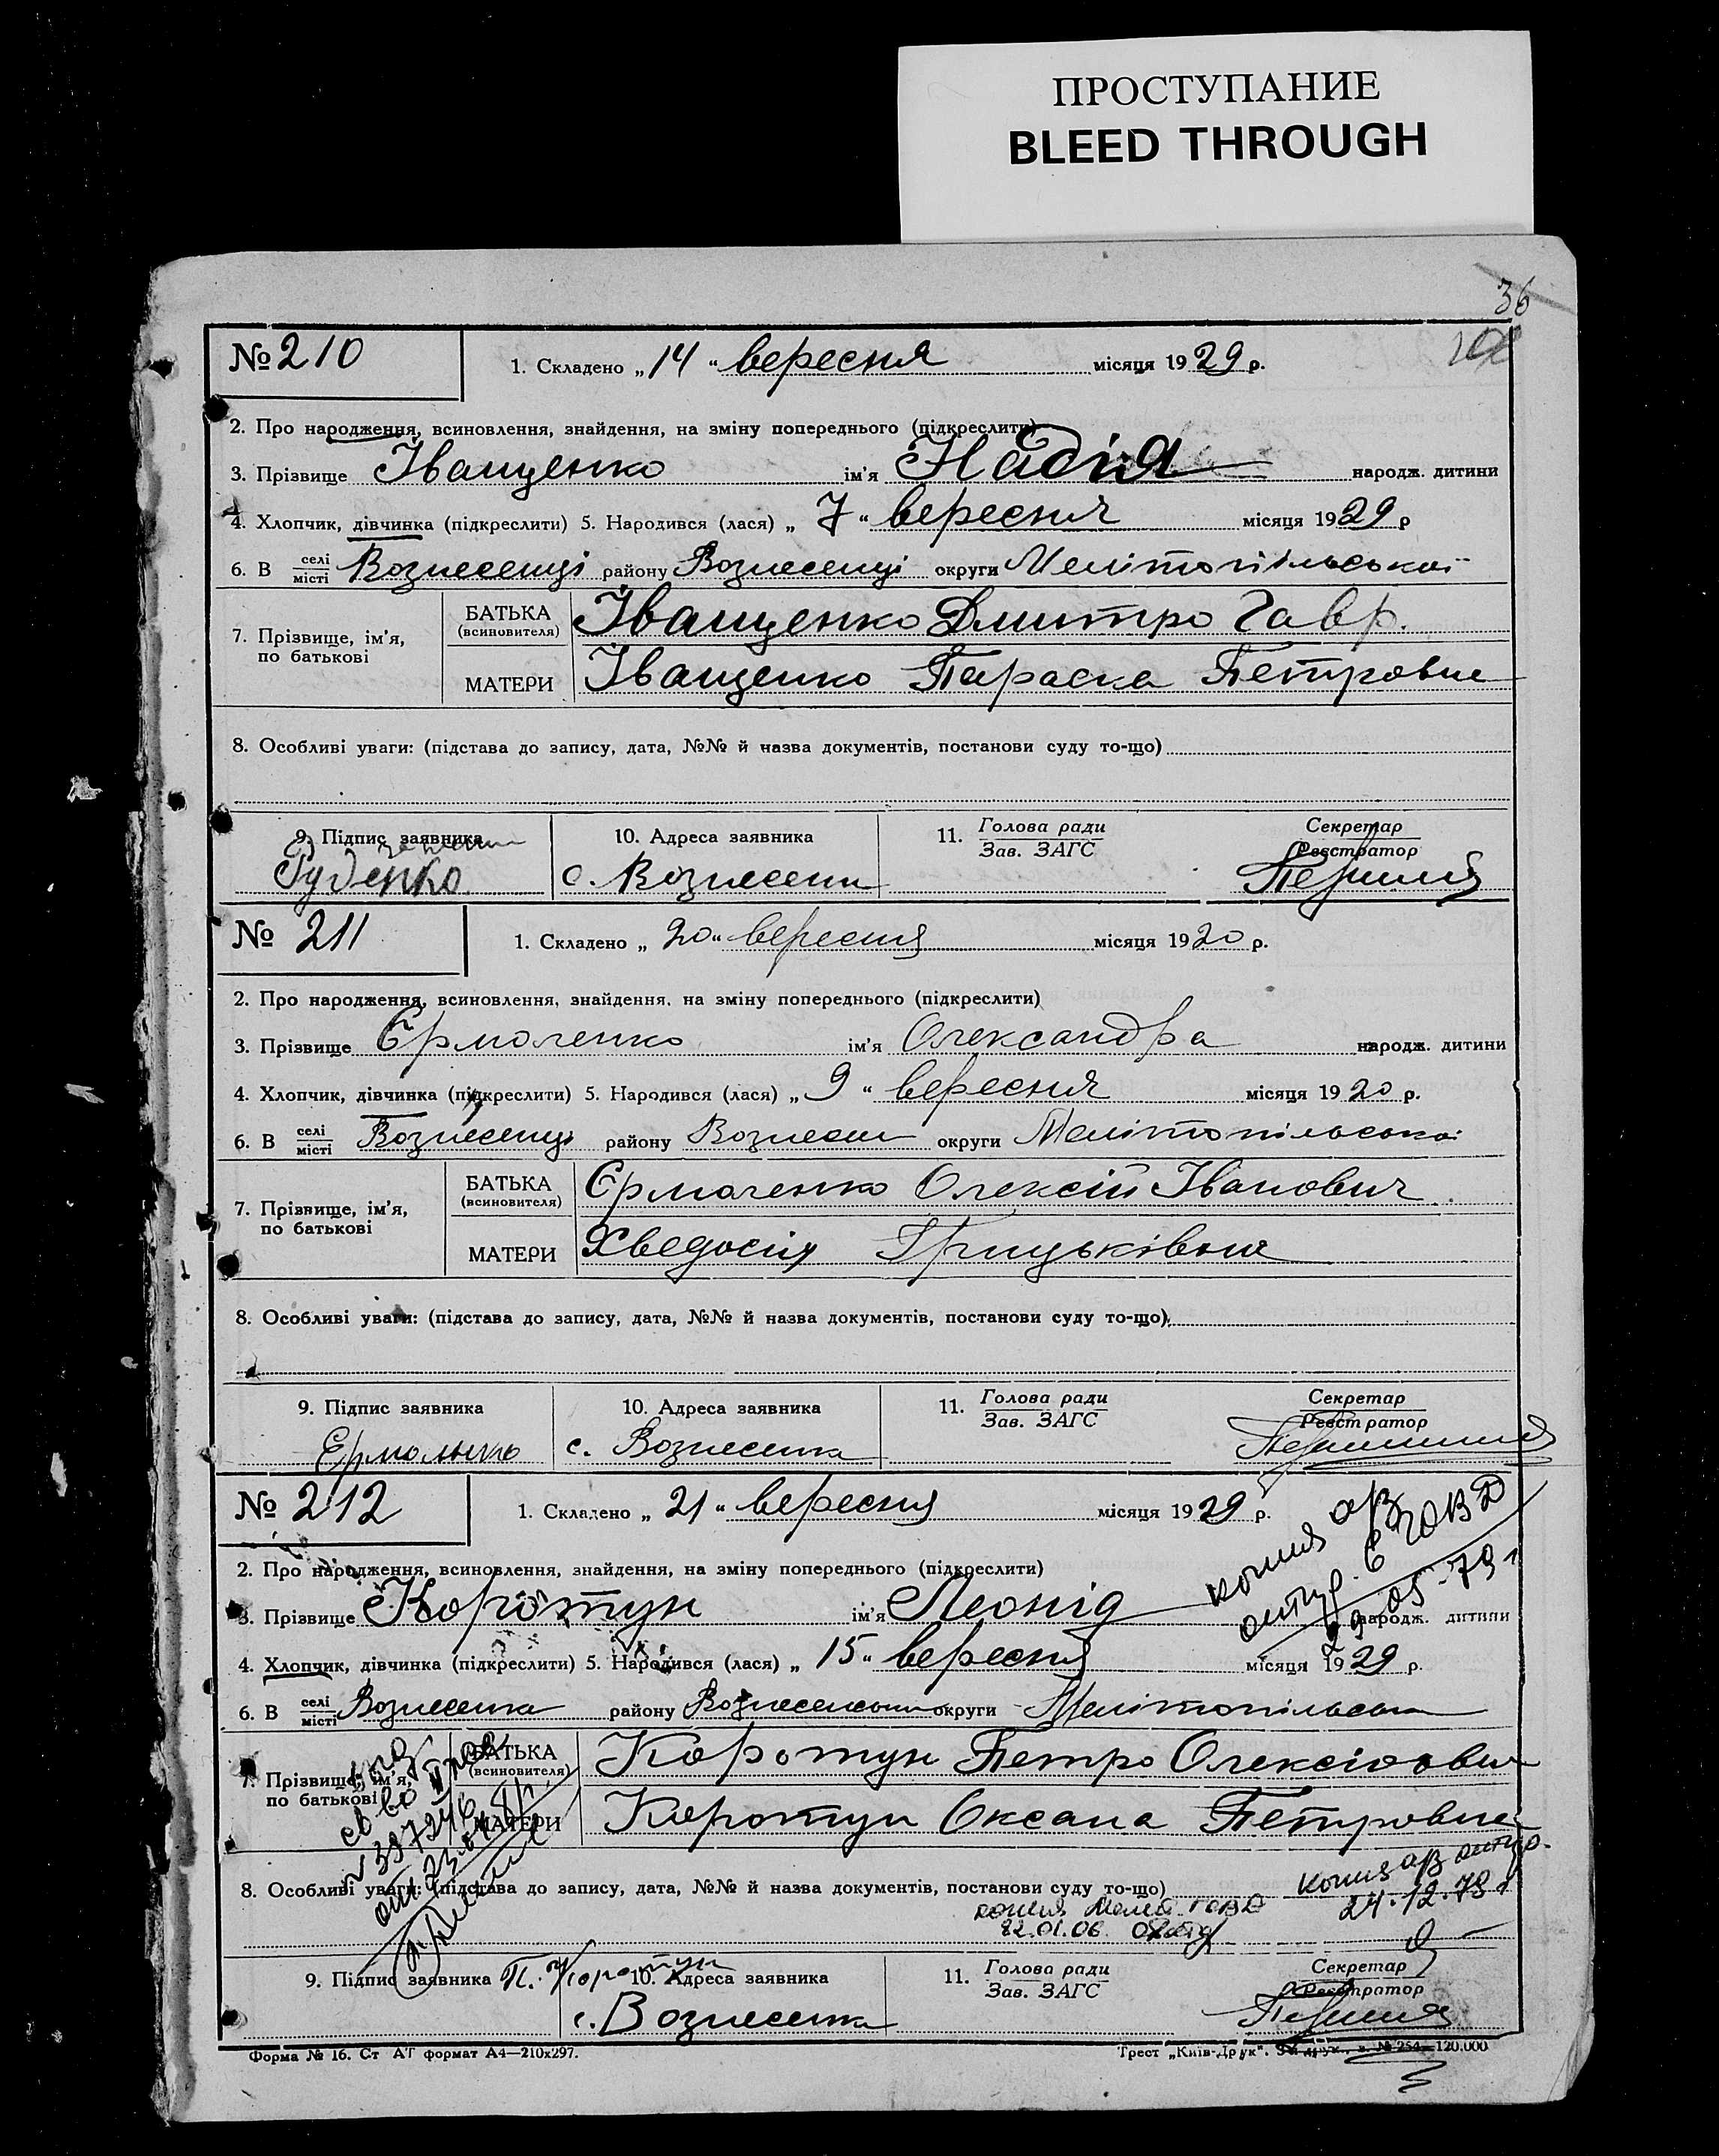 ПРОСТУПАНИЕ
BLEED THROUGH
36
№ 210
1. Складено „ 14 “ вересня місяця 1929 р.
2. Про народження, всиновлення, знайдення, на зміну попереднього (підкреслити)
3. Прізвище Іващенко ім'я Надія народж. дитини
4. Хлопчик, дівчинка (підкреслити) 5. Народився (лася) „ 7 “ вересня місяця 1929 р
6. В селі місті Вознесенці району Вознесенці округи Мелітопільської
7. Прізвище, ім'я, по батькові
БАТЬКА (всиновителя) Іващенко Дмитро Гавр.
МАТЕРИ Іващенко Параска Петровна
8. Особливі уваги: (підстава до запису, дата, №№ й назва документів, постанови суду то-що)
9. Підпис заявника 10. Адреса заявника 11. Голова ради Зав. ЗАГС Секретар Реєстратор
Гуденко с. Вознесенка
№ 211
1. Складено „ 20 “ вересня місяця 1920 р.
2. Про народження, всиновлення, знайдення, на зміну попереднього (підкреслити)
3. Прізвище Єрмоленко ім'я Олександра народж. дитини
4. Хлопчик, дівчинка (підкреслити) 5. Народився (лася) „ 9 “ вересня місяця 1920 р.
6. В селі місті Вознесенці району Вознесен округи Мелітопільської
7. Прізвище, ім'я, по батькові
БАТЬКА (всиновителя) Єрмоленко Олексій Іванович
МАТЕРИ Хведосія Грицьківна
8. Особливі уваги: (підстава до запису, дата, №№ й назва документів, постанови суду то-що)
9. Підпис заявника 10. Адреса заявника 11. Голова ради Зав. ЗАГС Секретар Реєстратор
Ермоленко с. Вознесенка
№ 212
1. Складено „ 21 “ вересня місяця 1929 р.
копия а/з
2. Про народження, всиновлення, знайдення, на зміну попереднього (підкреслити)
3. Прізвище Коротун ім'я Леонід народж. дитини
29-05-79 г
4. Хлопчик, дівчинка (підкреслити) 5. Народився (лася) „ 15 “ вересня місяця 1929 р.
6. В селі місті Вознесенка району Вознесенськ округи Мелітопільськ
7. Прізвище, ім'я, по батькові
БАТЬКА (всиновителя) Коротун Петро Олексійович
МАТЕРИ Коротун Оксана Петровна
8. Особливі уваги: (підстава до запису, дата, №№ й назва документів, постанови суду то-що)
копия а/з
24.12.79 г
копия
82.01.06.
9. Підпис заявника П. Коротун 10. Адреса заявника 11. Голова ради Зав. ЗАГС Секретар Реєстратор
с. Вознесенка
Форма № 16. Ст АТ формат А4—210х297.
Трест „Київ-Друк“. № 254—120.000